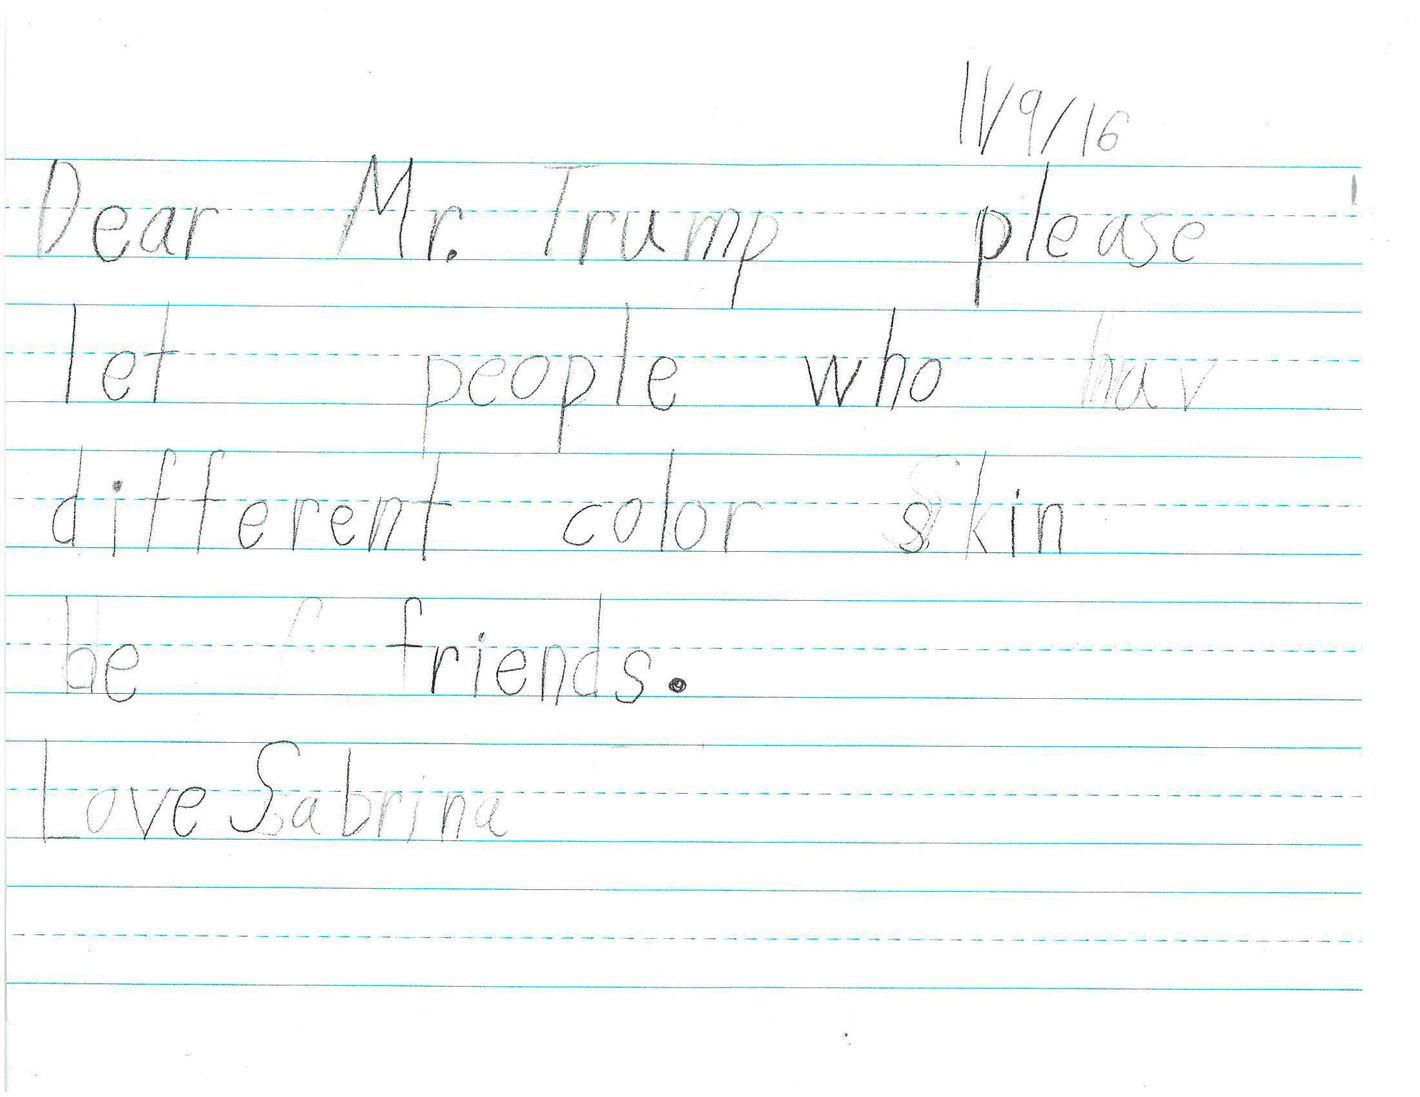 11/9/16
Dear Mr. Trump please
let people who hav
different color skin
be friends.
Love Sabrina